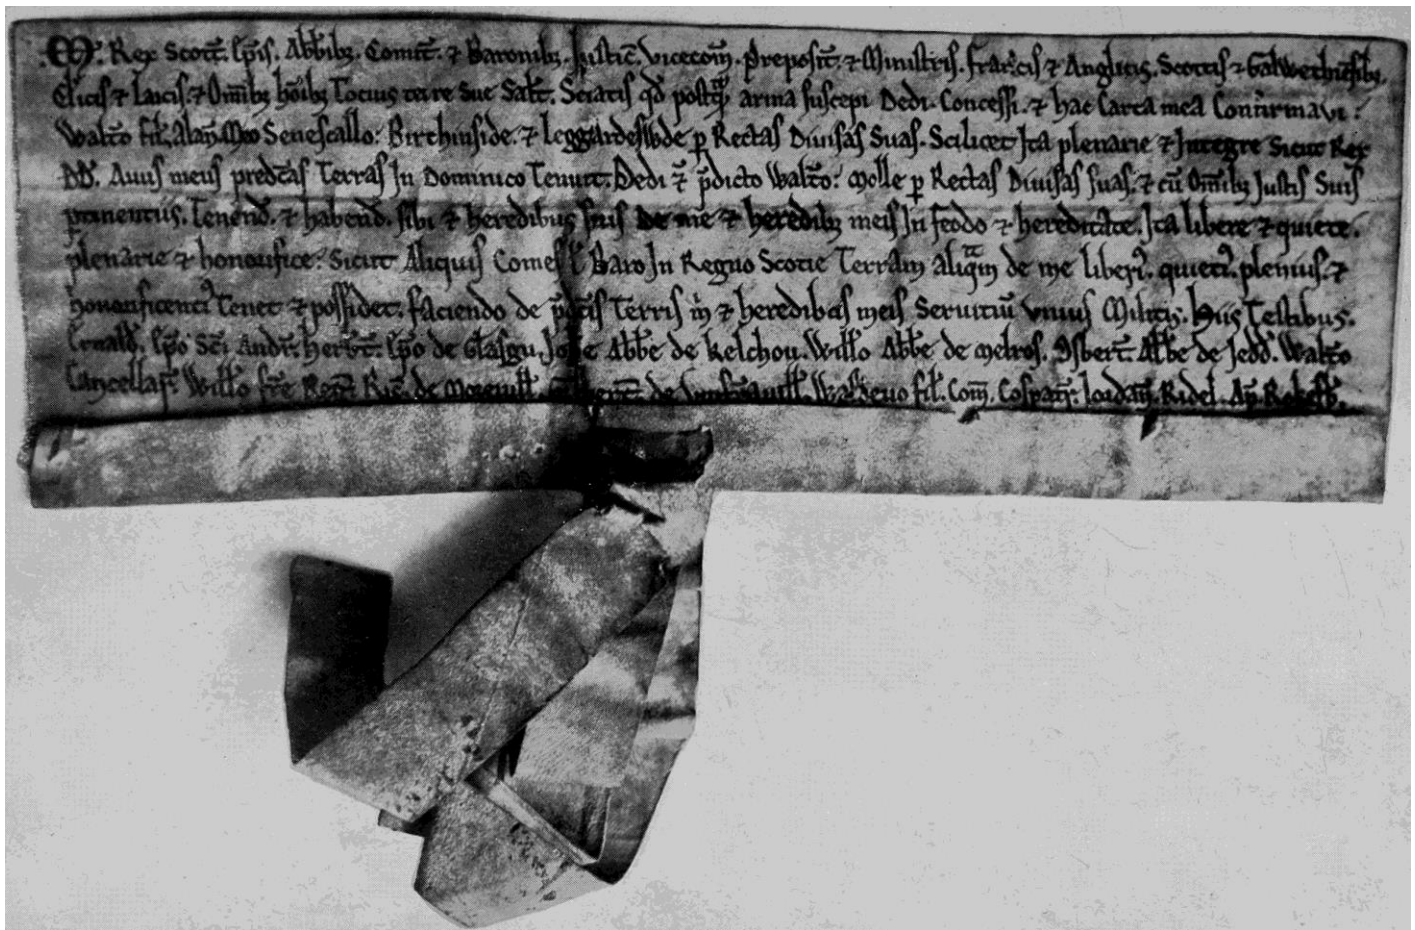 .M. Rex Scott. Ep̄is. Abb̄ibȝ. Comit̄. ⁊ Baronibȝ. Justic̄. Vicecom̄. Preposit̄. ⁊ Ministris. Francis ⁊ Anglicis. Scottis ⁊ Galwethiensibȝ.
Cl̄icis ⁊ Laicis. ⁊ Om̄ibȝ ho̅ibȝ Tocius terre Sue Salt̄. Sciatis qd̄ postq̄ᵃ arma suscepi Dedi. Concessi. ⁊ hac Carta mea Confirmavi:
Walt̄o fil̄. Alan̄. Meo Senescallo: Birchinside. ⁊ Leggardeswde ꝑ Rectas Diuisas Suas. Scilicet Ita plenarie ⁊ Integre Sicut Rex
DD̄. Auus meus pred̄cas Terras In Dominico Tenuit. Dedi ⁊ p̄dicto Walt̄o: Molle ꝑ Rectas Diuisas suas. ⁊ cū Om̄ibȝ Justis Suis
ꝑtinentiis. Tenend̄. ⁊ habend̄. sibi ⁊ heredibus suis De me ⁊ heredibȝ meis In feodo ⁊ hereditate. Ita libere ⁊ quiete.
plenarie ⁊ honorifice: Sicut Aliquis Comes ł Baro In Regno Scotie Terram aliq̄ᵃm de me liberi᾽. quieti᾽. plenius. ⁊
honorificenti᾽ Tenet ⁊ possidet. faciendo de p̄dc̄is Terris m̄ ⁊ heredibus meis Seruitiū vnius Militis. Hiis Testibus.
Ernald̄. Ep̄o Sc̄i Andr̄. herb̄t. Ep̄o de Glasgu. Joh̄e Abb̄e de kelchou. Will̄o Abb̄e de melros. Osbert̄. Abb̄e de Jedd̄. Walt̄o
Cancellar̄. Will̄o fr̄e Reg̅ Ric̄. de Moreuill̄. de Vmfrauill̄. Waldeuo fil̄. Com̄. Cospatr̄. Jordan̄. Ridel.